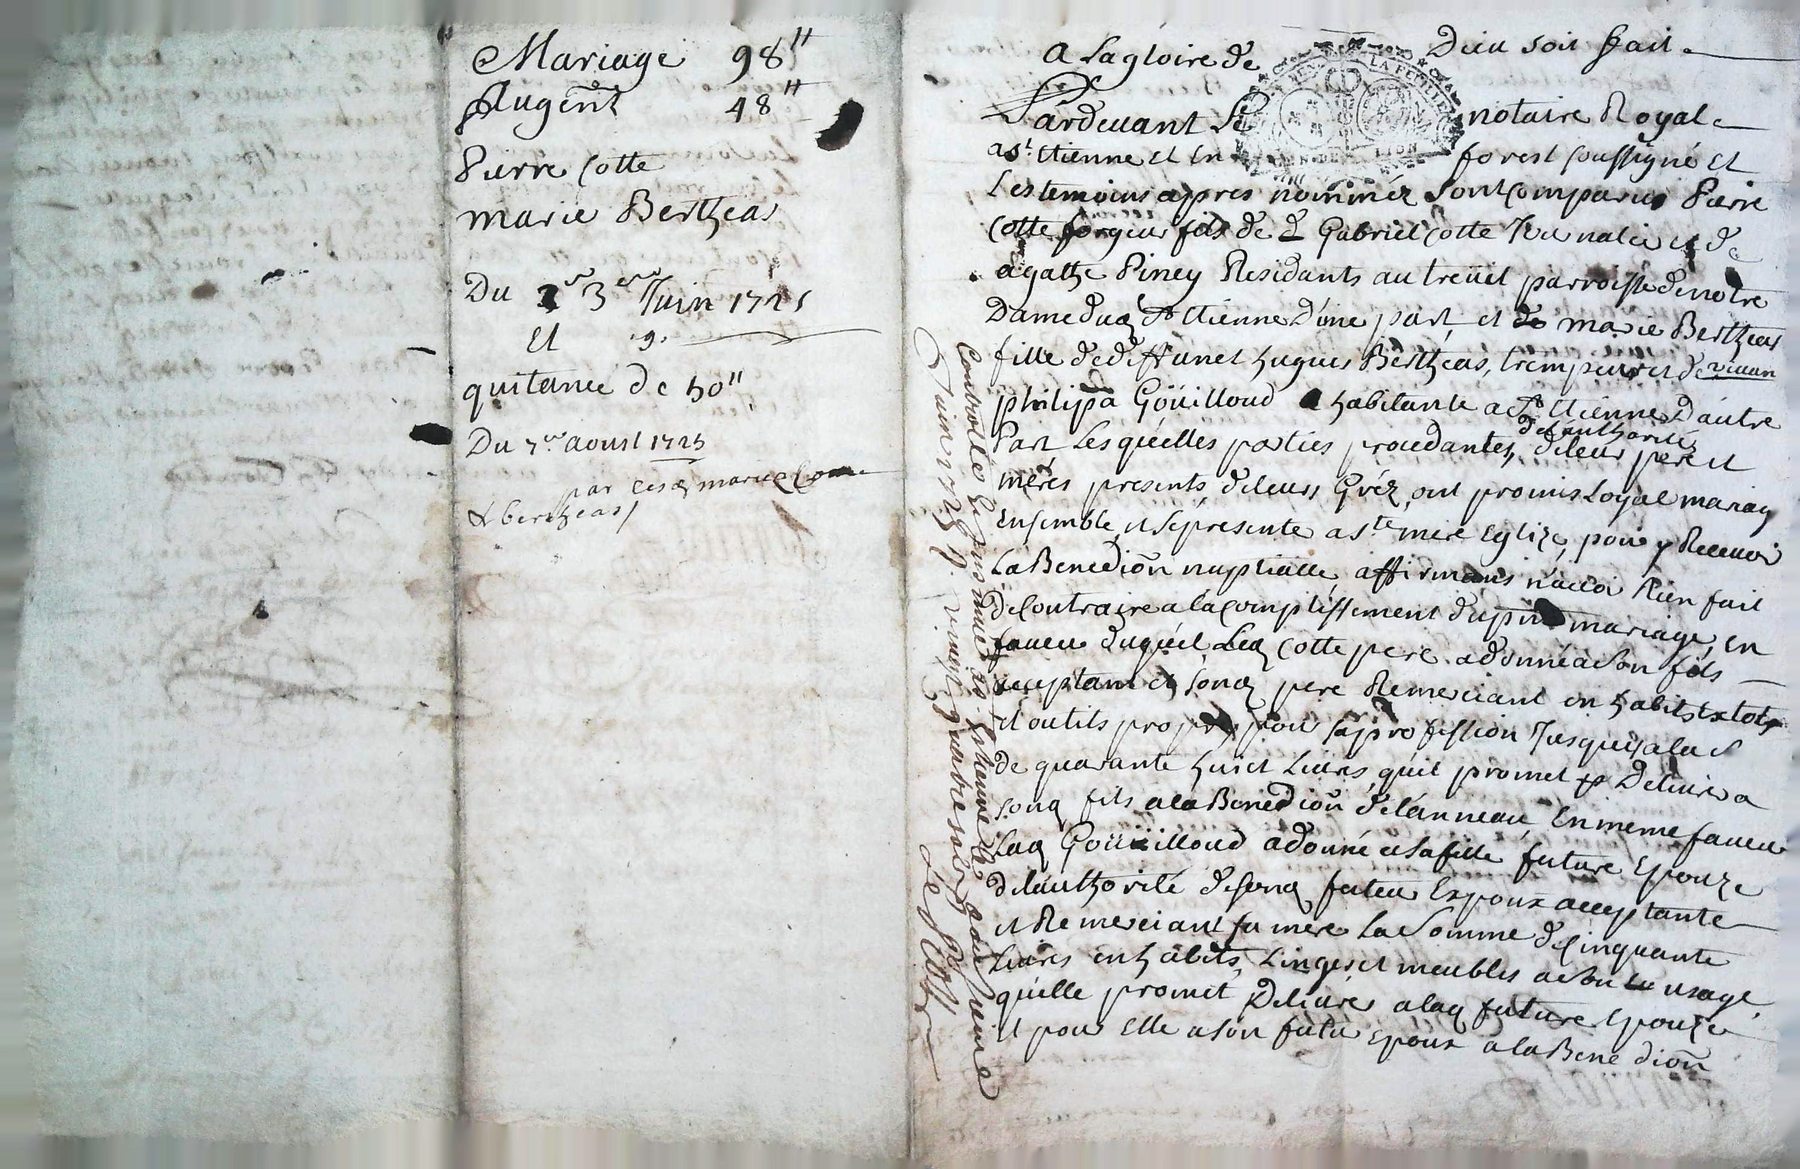 Mariage 98"
Augent 48"
Pierre Cotte
marie Bertheas
Du 3er Juin 1725
Et 9.
quitance de 50"
Du 7er aoust 1725
par Marie
& bertheas
A la gloire de Dieu soit fait
Pardevant Le notaire Royal
a st Etienne et en forest soussigné et
Les temoins apres nommez sont comparus Pierre
Cotte forgeur fils de Gabriel Cotte Journalier et de
agathe Piney Residants au treüil parroisse de notre
Dame dud st Etienne D'une part et marie Bertheas
fille de deffunct hugues Bertheas, trempeur et de vivan
philipa Goüilloud habitante a st Etienne D'autre
de l'authorité
Part Les quelles parties procedantes de leur pere et
meres presents de leurs Gréz ont promis Loyal mariag
Ensemble, et se presenté a ste mere Eglize, pour y Recevoir
La Benediōn nuptialle affirmants n'avoir Rien fait
de Contraire a l'accomplissement du pnt mariage, en
faveur duquel Led Cotte pere a donné a son fils
acceptant et sond pere Remerciant en habits
et outils propres pour sa profession Jusques a la s
de quarante huict Livres qu'il promet Delivrer a
sond fils a la Benediōn de l'anneau, En meme faveur
Lad Goüilloud a donné a sa fille future Epouze
de l'authorité de sond futeur Expoux acceptante
et Remerciant sa mere La Somme de Cinquante
Livres en habits, Linges et meubles a son usage,
qu'elle promet Delivrer a lad future Epouze
et pour Elle a son futur Epoux a la Benediōn
Controllé a st Etienne le
Juin 1725 R. vingt quatre sols